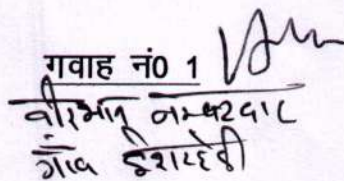 गवाह नं0 1
वीरभान नम्बरदार
गांव ईशरहेडी